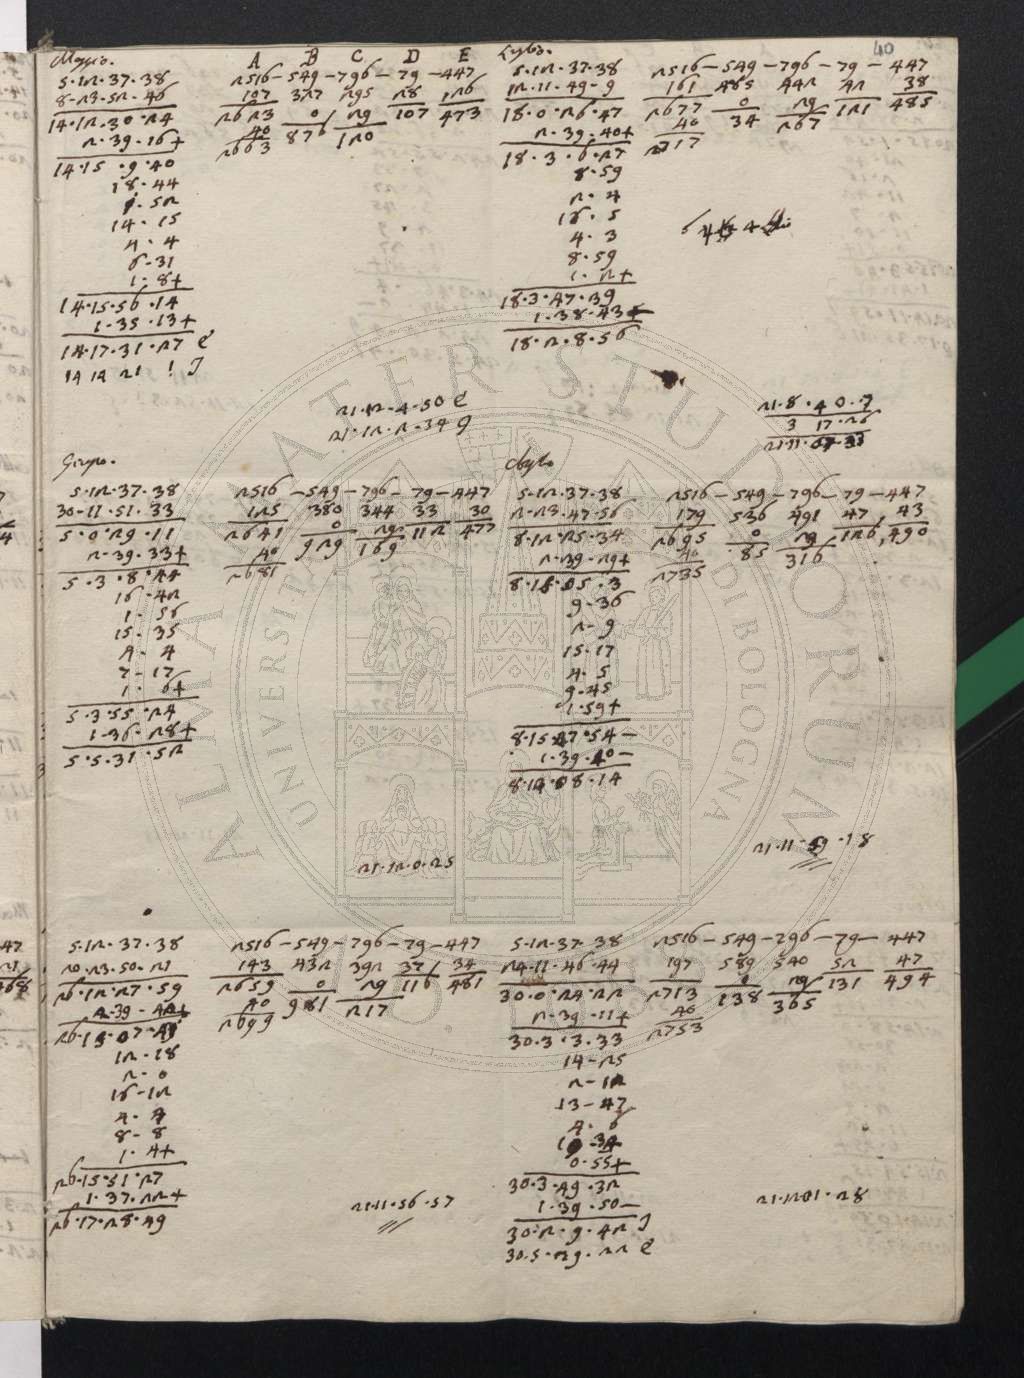 40
Maggio.
A B C D E
5·12·37·38
8-23·52·46
14·12·30·24
2·39·16+
14·15·9·40
18·44
1·52
14·15
4·4
6·31
1·8+
14·15·56·14
1·35·13+
14·17·31·27 e
14 14 21 ! J
2516-549-796-79-447
107 327 295 28 126
2623 0 29 107 473
40 876 120
2663
21·12·4·50 e
21·12·2·34 g
5·12·37·38
12·11·49-9
18·0·26·47
2·39·40+
18·3·6·27
8·59
2·4
16·5
4·3
8·59
1·2+
18·3·47·39
1·38·43+
18·2·8·56
2516-549-796-79-447
161 485 442 42 38
2677 0 29 121 485
40 34 267
2717
21·8·40·7
3 17·26
Giugno.
5·12·37·38
30-11·51·33
5·0·29·11
2·39·33+
5·3·8·44
16·42
1·56
15·35
4·4
7-17
1·6+
5·3·55·24
1·36·28+
5·5·31·52
2516-549-796-79-447
125 380 344 33 30
2641 0 29 112 477
40 929 169
2681
21·12·0·25
5·12·37·38
2-23·47·56
8·12·25·34
2·39-29+
9-36
2-9
15·17
4·5
9·45
1·59+
8·15·47·54-
1·39·40-
2516-549-796-79-447
179 536 491 47 43
2695 0 29 126, 490
40 85 316
2735
5·12·37·38
20·23·50·21
26·12·27·59
12-18
2-0
16-12
4-4
8-8
1·4+
26·15·51·27
1·37·22+
26·17·28·49
2516-549-796-79-447
143 432 392 37 34
2659 0 29 116 481
40 981 217
2699
21·11·56·57
5·12·37·38
24·11·46·44
30·0·24·22
2-39-11+
30·3·3·33
14-25
2-12
13-47
4·6
0·55+
30·3·49·32
1·39·50-
30·2·9·42 J
30·5·29·22 e
2516-549-796-79-447
197 589 540 52 47
2713 0 29 131 494
40 138 365
2753
21·12·01·28
ALMA MATER STUDIORUM
UNIVERSITÀ DI BOLOGNA